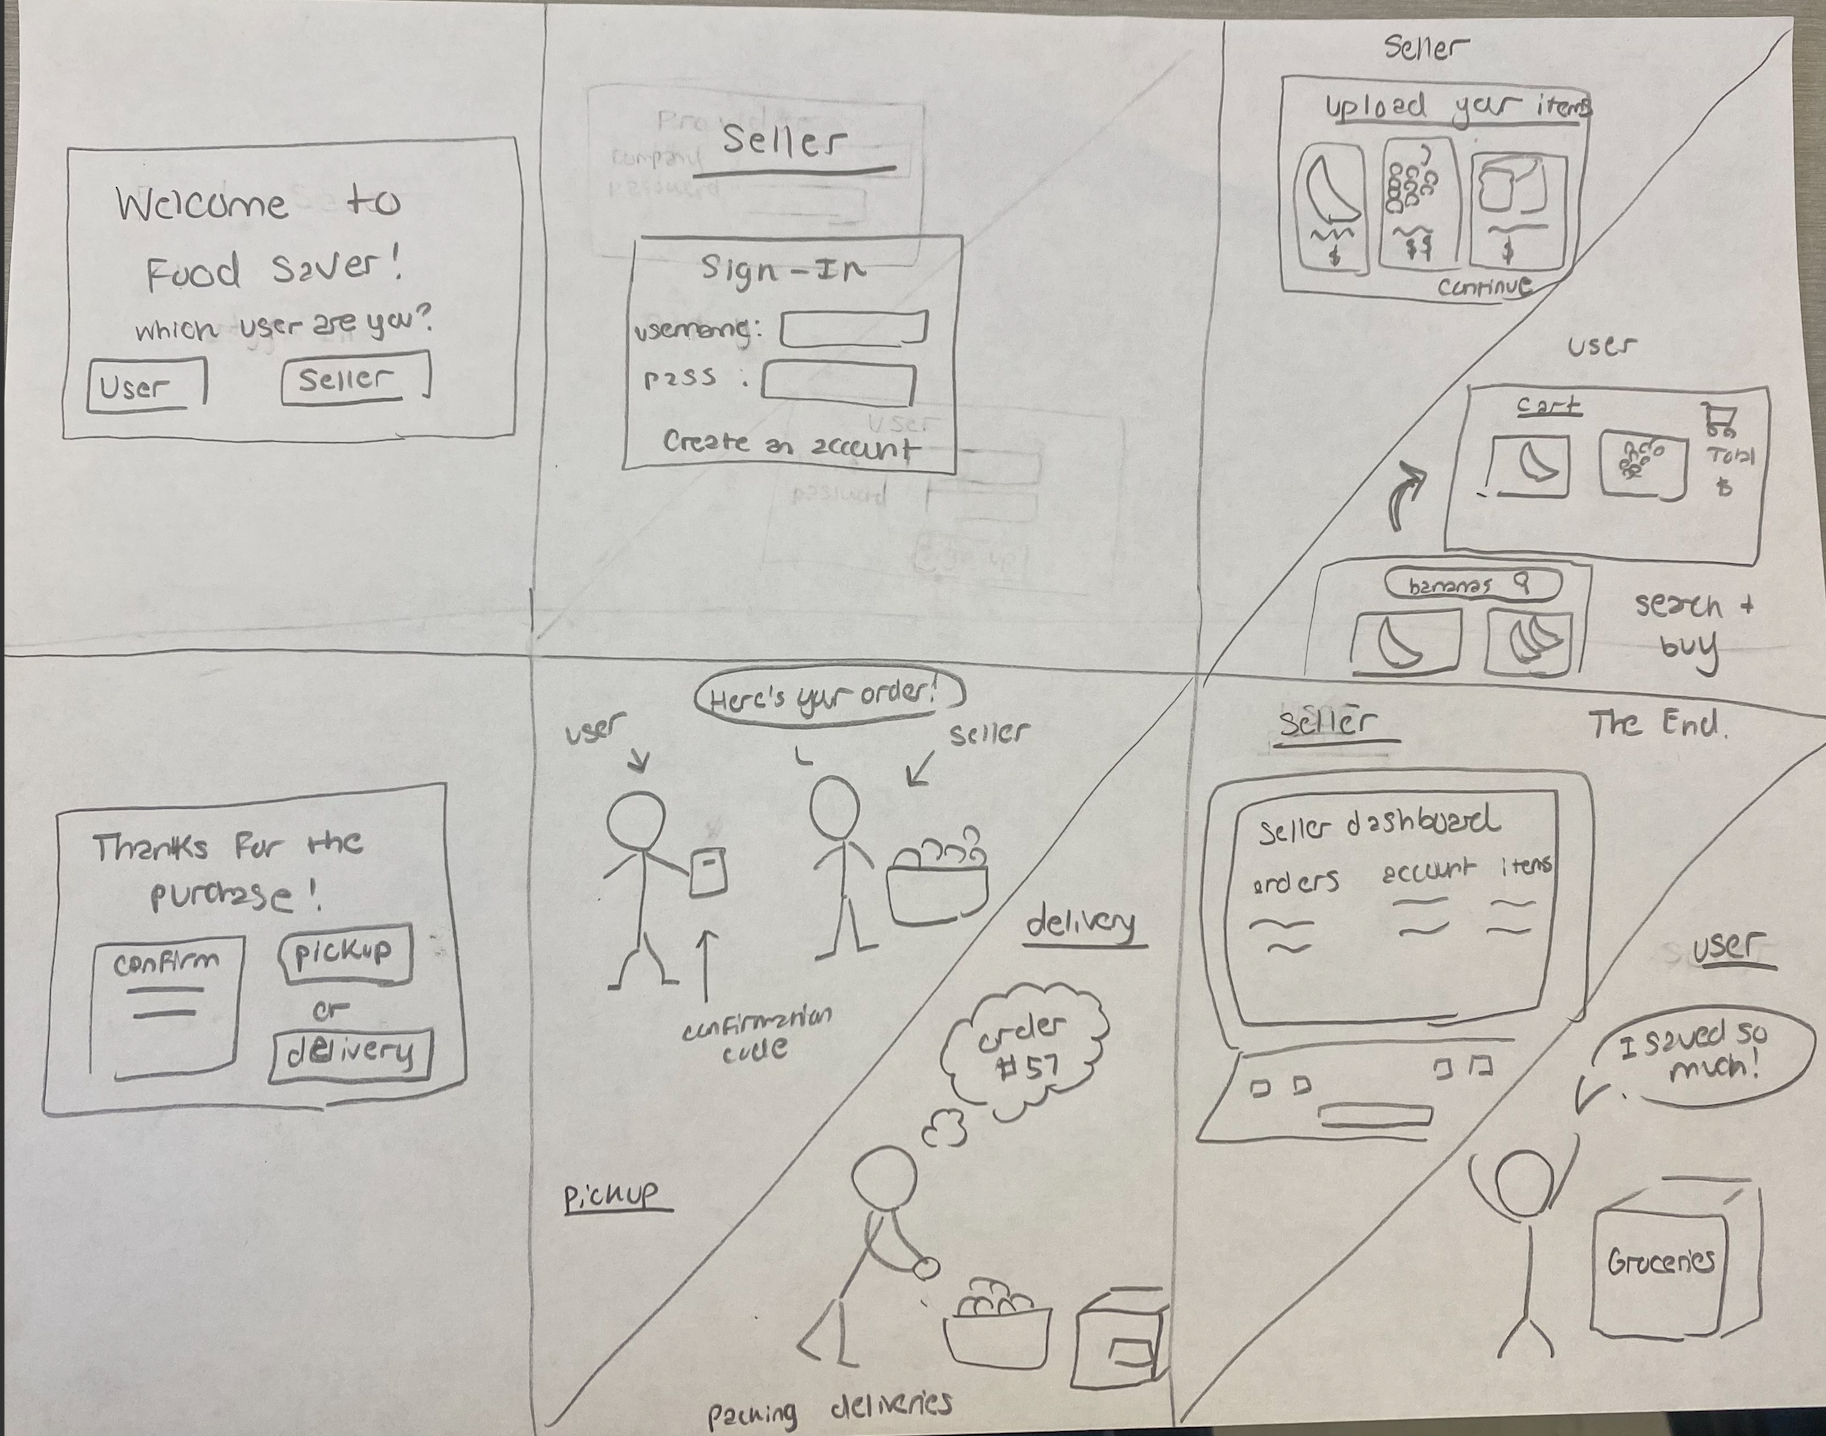 Welcome to
Food Saver!
which user are you?
User
Seller
Seller
Sign-In
username:
pass :
Create an account
Seller
upload your items
$
$$
$
continue
user
cart
Total
$
bananas
search +
buy
Thanks for the
purchase!
confirm
pickup
or
delivery
Here's your order!
user
seller
confirmation
code
pickup
delivery
order
#57
packing deliveries
Seller
The End.
Seller dashboard
orders account items
user
I saved so
much!
Groceries